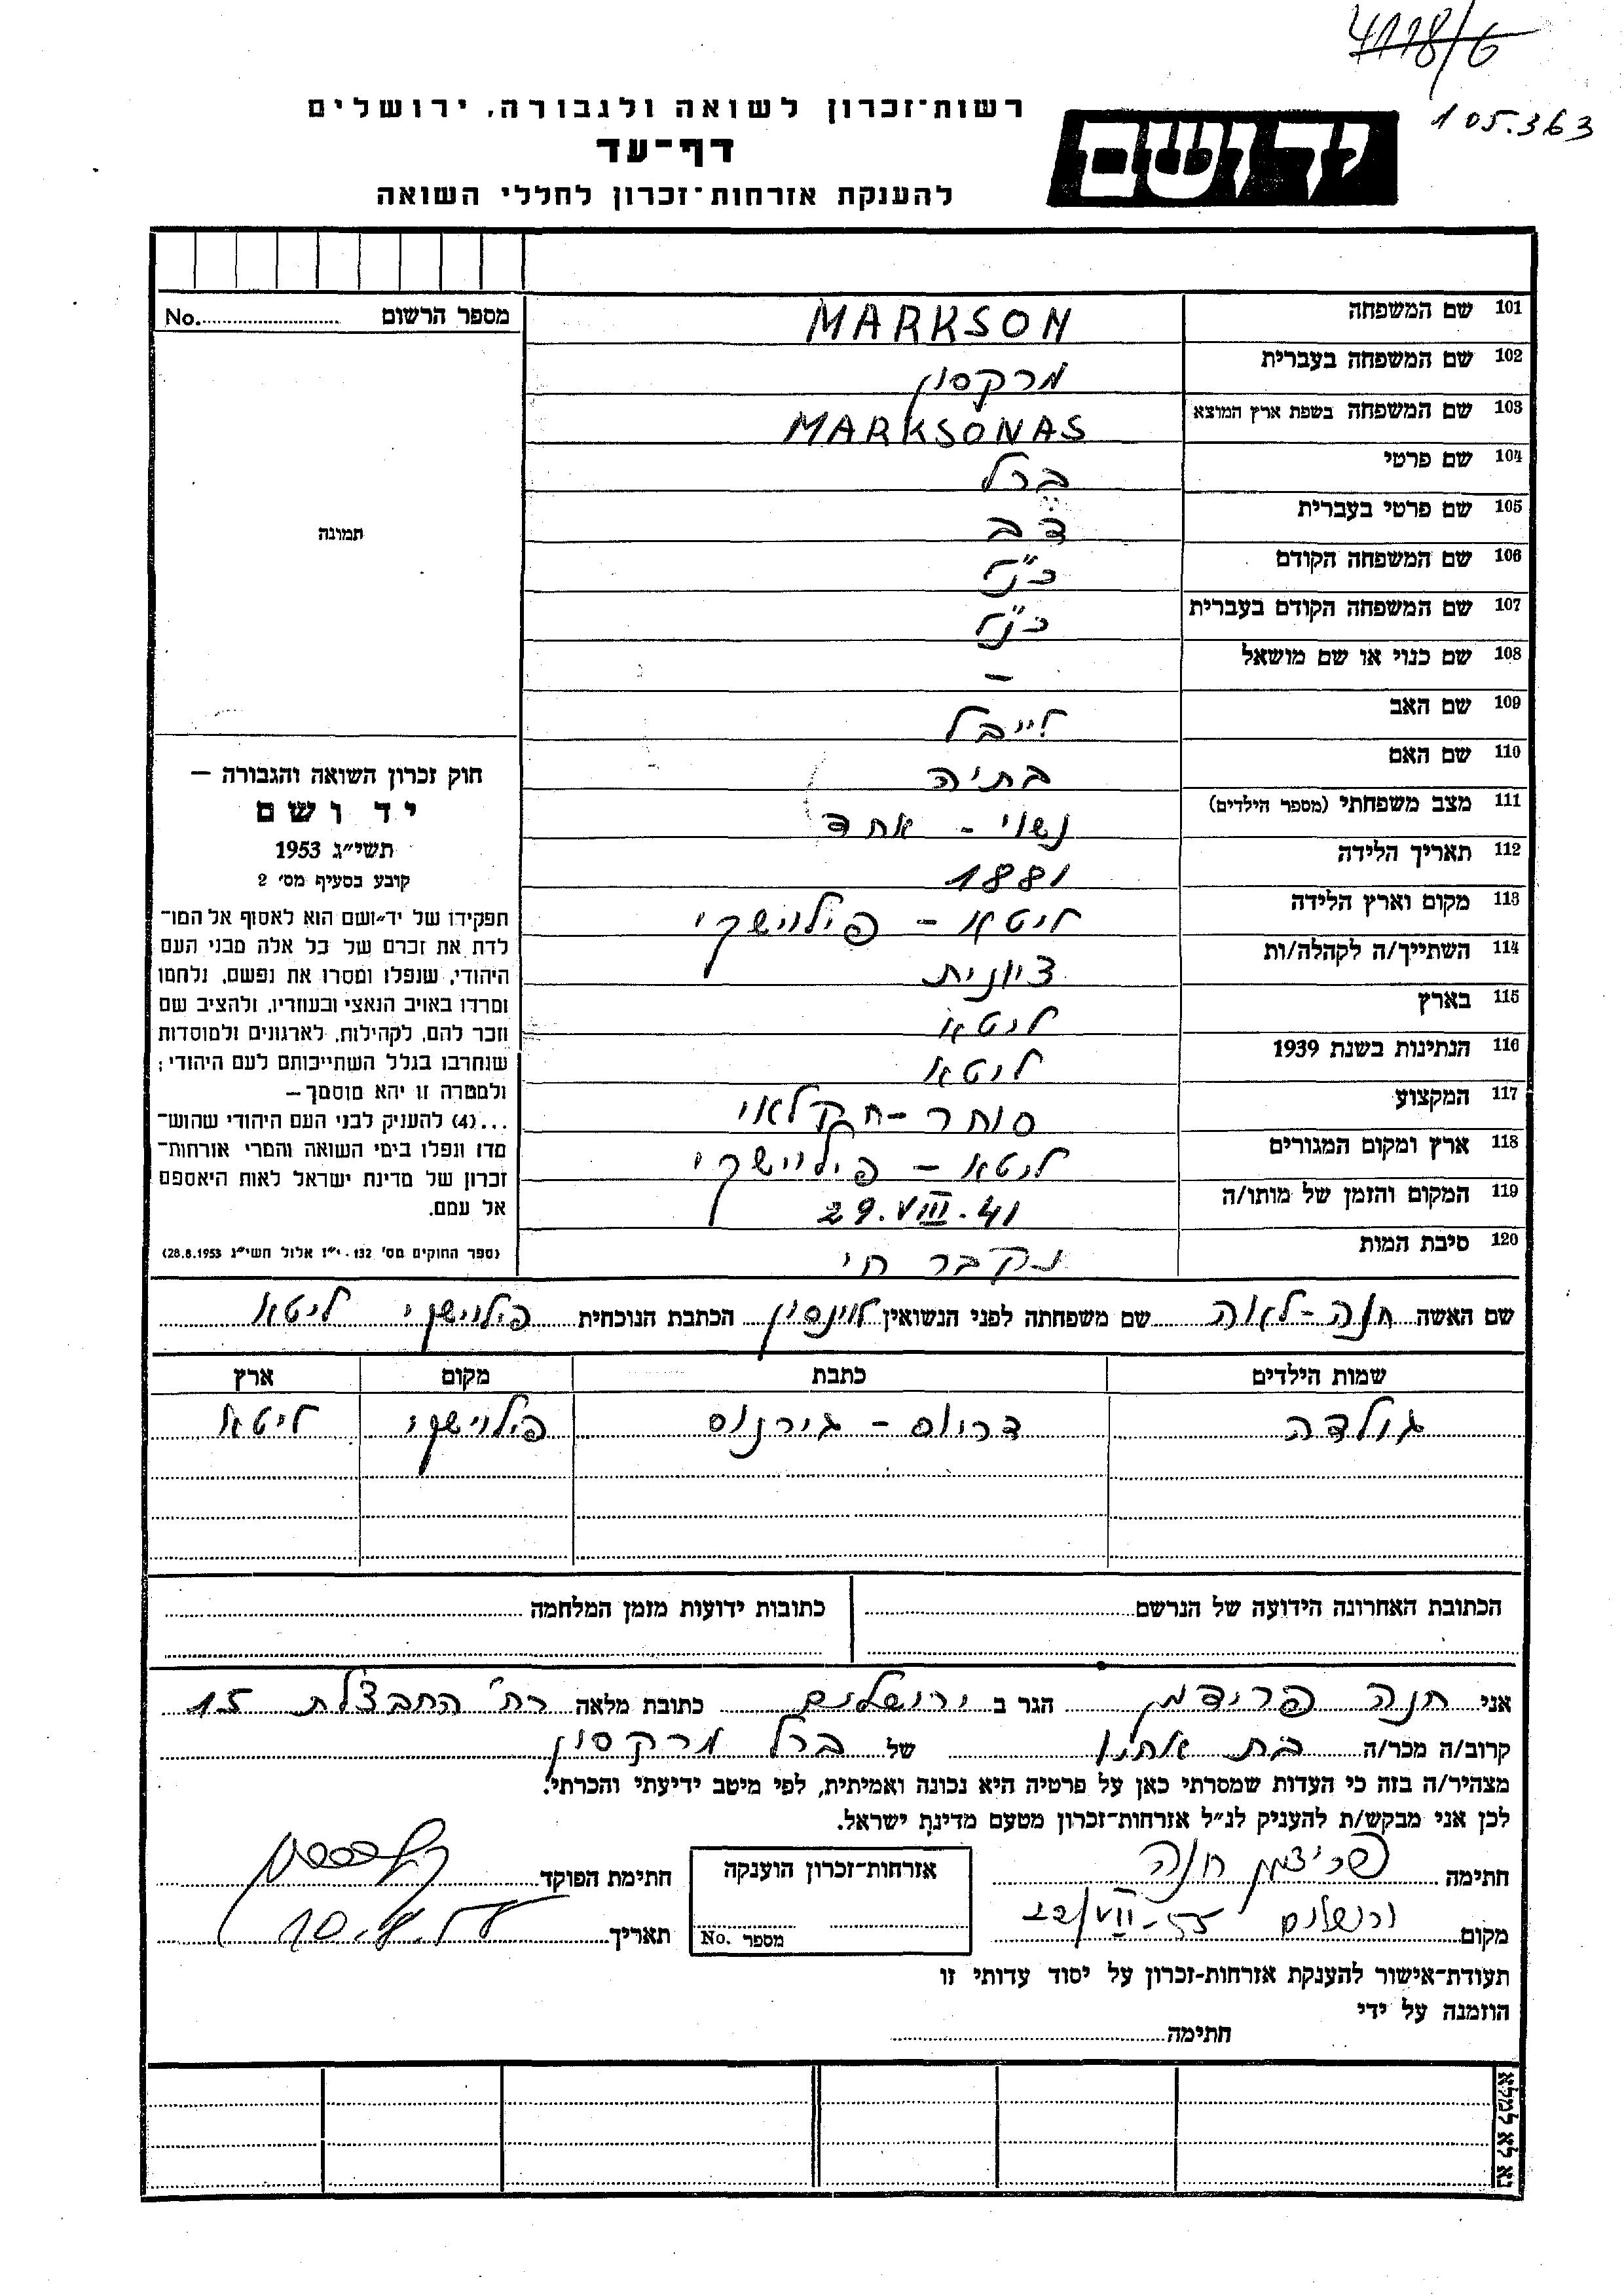 4118/6
105.363
רשות־זכרון לשואה ולגבורה, ירושלים
דף־עד
להענקת אזרחות־זכרון לחללי השואה
יד ושם
מספר הרשום No.
תמונה
101 שם המשפחה MARKSON
102 שם המשפחה בעברית מרקסון
103 שם המשפחה בשפת ארץ המוצא MARKSONAS
104 שם פרטי ברל
105 שם פרטי בעברית דב
106 שם המשפחה הקודם כנ"ל
107 שם המשפחה הקודם בעברית כנ"ל
108 שם כנוי או שם מושאל –
109 שם האב לייבל
110 שם האם בתיה
111 מצב משפחתי (מספר הילדים) נשוי - אחד
112 תאריך הלידה 1881
113 מקום וארץ הלידה ליטא - פילוישקי
114 השתייך/ה לקהלה/ות ציונית
115 בארץ ליטא
116 הנתינות בשנת 1939 ליטא
117 המקצוע סוחר - חקלאי
118 ארץ ומקום המגורים ליטא - פילוישקי
119 המקום והזמן של מותו/ה 29.VIII.41
120 סיבת המות נקבר חי
חוק זכרון השואה והגבורה —
יד ושם
תשי״ג 1953
קובע בסעיף מס' 2
תפקידו של יד־ושם הוא לאסוף אל המו־
לדת את זכרם של כל אלה מבני העם
היהודי, שנפלו ומסרו את נפשם, נלחמו
ומרדו באויב הנאצי ובעוזריו, ולהציב שם
וזכר להם, לקהילות, לארגונים ולמוסדות
שנחרבו בגלל השתייכותם לעם היהודי;
ולמטרה זו יהא מוסמך—
...(4) להעניק לבני העם היהודי שהוש־
מדו ונפלו בימי השואה והמרי אזרחות־
זכרון של מדינת ישראל לאות היאספם
אל עמם.
(ספר החוקים מס' 132 · י״ז אלול תשי״ג 28.8.1953)
שם האשה חנה-לאה שם משפחתה לפני הנשואין לוינסון הכתבת הנוכחית פילוישקי ליטא
שמות הילדים כתבת מקום ארץ
גולדה דריוס - גירנוס פילוישקי ליטא
הכתובת האחרונה הידועה של הנרשם כתובות ידועות מזמן המלחמה
אני חנה פרידמן הגר ב ירושלים כתובת מלאה רח' החבצלת 15
קרוב/ה מכר/ה בת אחיו של ברל מרקסון
מצהיר/ה בזה כי העדות שמסרתי כאן על פרטיה היא נכונה ואמיתית, לפי מיטב ידיעתי והכרתי.
לכן אני מבקש/ת להעניק לנ״ל אזרחות־זכרון מטעם מדינת ישראל.
חתימה פרידמן חנה
אזרחות־זכרון הוענקה
חתימת הפוקד
מקום ירושלים 22/VII-55
מספר No.
תאריך
תעודת־אישור להענקת אזרחות־זכרון על יסוד עדותי זו
הוזמנה על ידי
חתימה
נא לא למלא